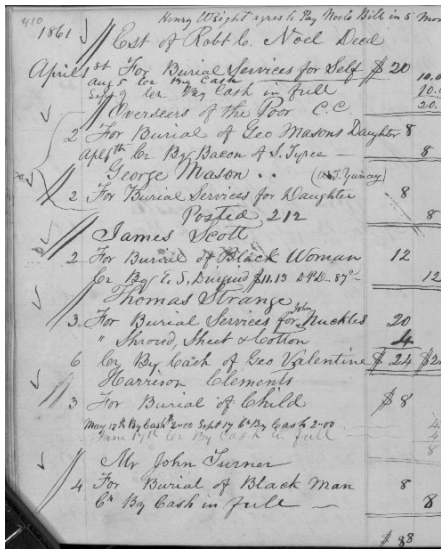 410 Henry Wright agres to Pay Noels Bill in 5 Mon
1861 Est of Robt C. Noel Decd
April 1st For Burial Services for Self $20
Aug 5 Cr By Cash 10.0
Sept 9 Cr By Cash in full 10.0
20.
Overseers of the Poor C.C
2 For Burial of Geo Masons Daughter 8
Apl 6th Cr By Bacon of S. Tyree — 8
George Mason . .
2 For Burial Services for Daughter 8
Posted 212 8
James Scott
2 For Burial of Black Woman 12
Cr By E. S. $11.13 87c — 12
Thomas Strange
3 For Burial Services for John Nuckles 20
" Shroud, Sheet & Cotton 4
6 Cr By Cash of Geo Valentine $24 $2
Harrison Clements
3 For Burial of Child $8
May 17th By Cash $2.00 Sept 17 Cr By Cash 2.00 4
June 17th Cr By Cash in full — 4
8
Mr John Turner
4 For Burial of Black Man 8
Cr By Cash in full — 8
$ 88